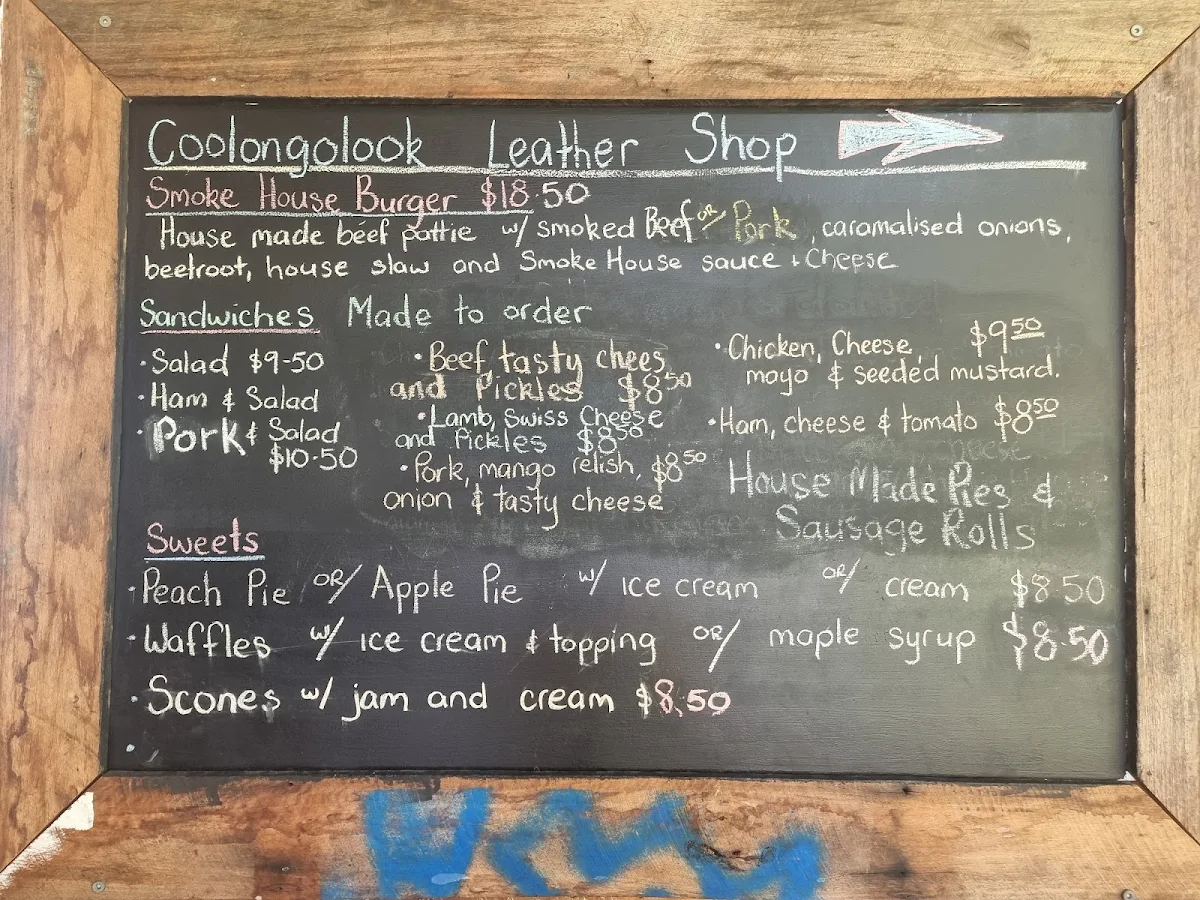 Coolongolook Leather Shop
Smoke House Burger $18.50
House made beef pattie w/ smoked Beef OR/ Pork, caramalised onions,
beetroot, house slaw and Smoke House sauce + Cheese
Sandwiches Made to order
·Salad $9-50
·Ham & Salad
·Pork & Salad
$10.50
·Beef, tasty chees
and Pickles $8.50
·Lamb, Swiss Cheese
and Pickles $8.50
·Pork, mango relish, $8.50
onion & tasty cheese
·Chicken, Cheese, $9.50
mayo & seeded mustard.
·Ham, cheese & tomato $8.50
House Made Pies &
Sausage Rolls
Sweets
·Peach Pie OR/ Apple Pie w/ ice cream OR/ cream $8.50
·Waffles w/ ice cream & topping OR/ maple syrup $8.50
·Scones w/ jam and cream $8.50